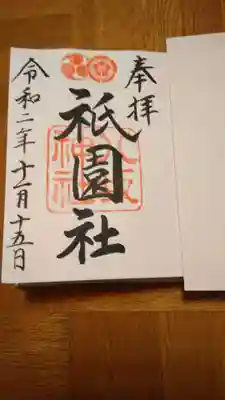 奉拝
祇園社
八坂
神社
令和二年十一月十五日